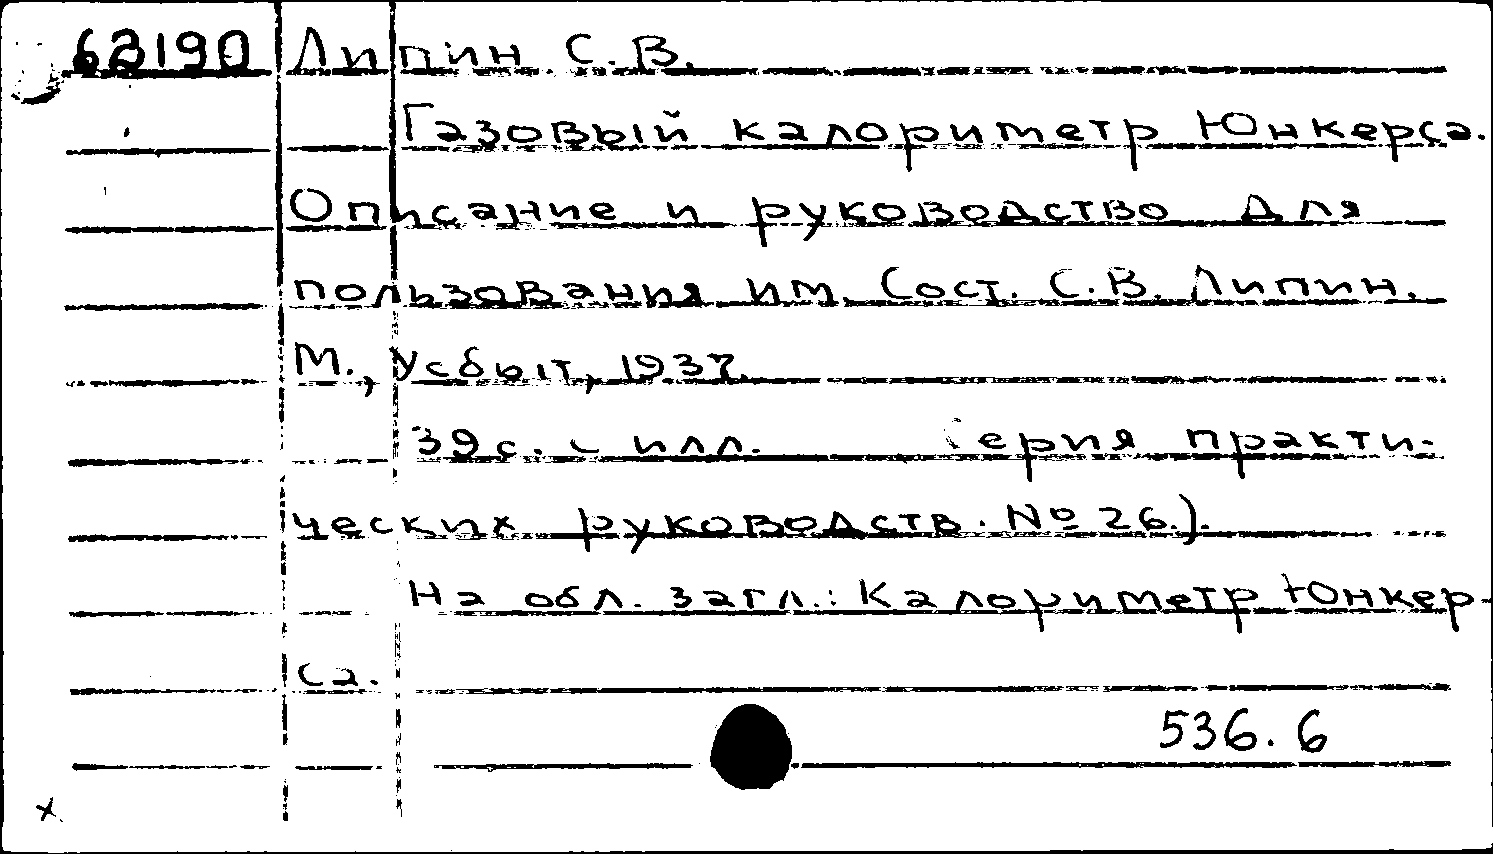 63190 Липин С.В.
Газовый калориметр Юнкерса.
Описание и руководство для
пользования им. Сост. С.В. Липин.
М., Усбыт, 1937.
39 с. с илл. Серия практи-
ческих руководств. № 26.).
На обл. загл.: Калориметр Юнкер-
са.
536.6
x